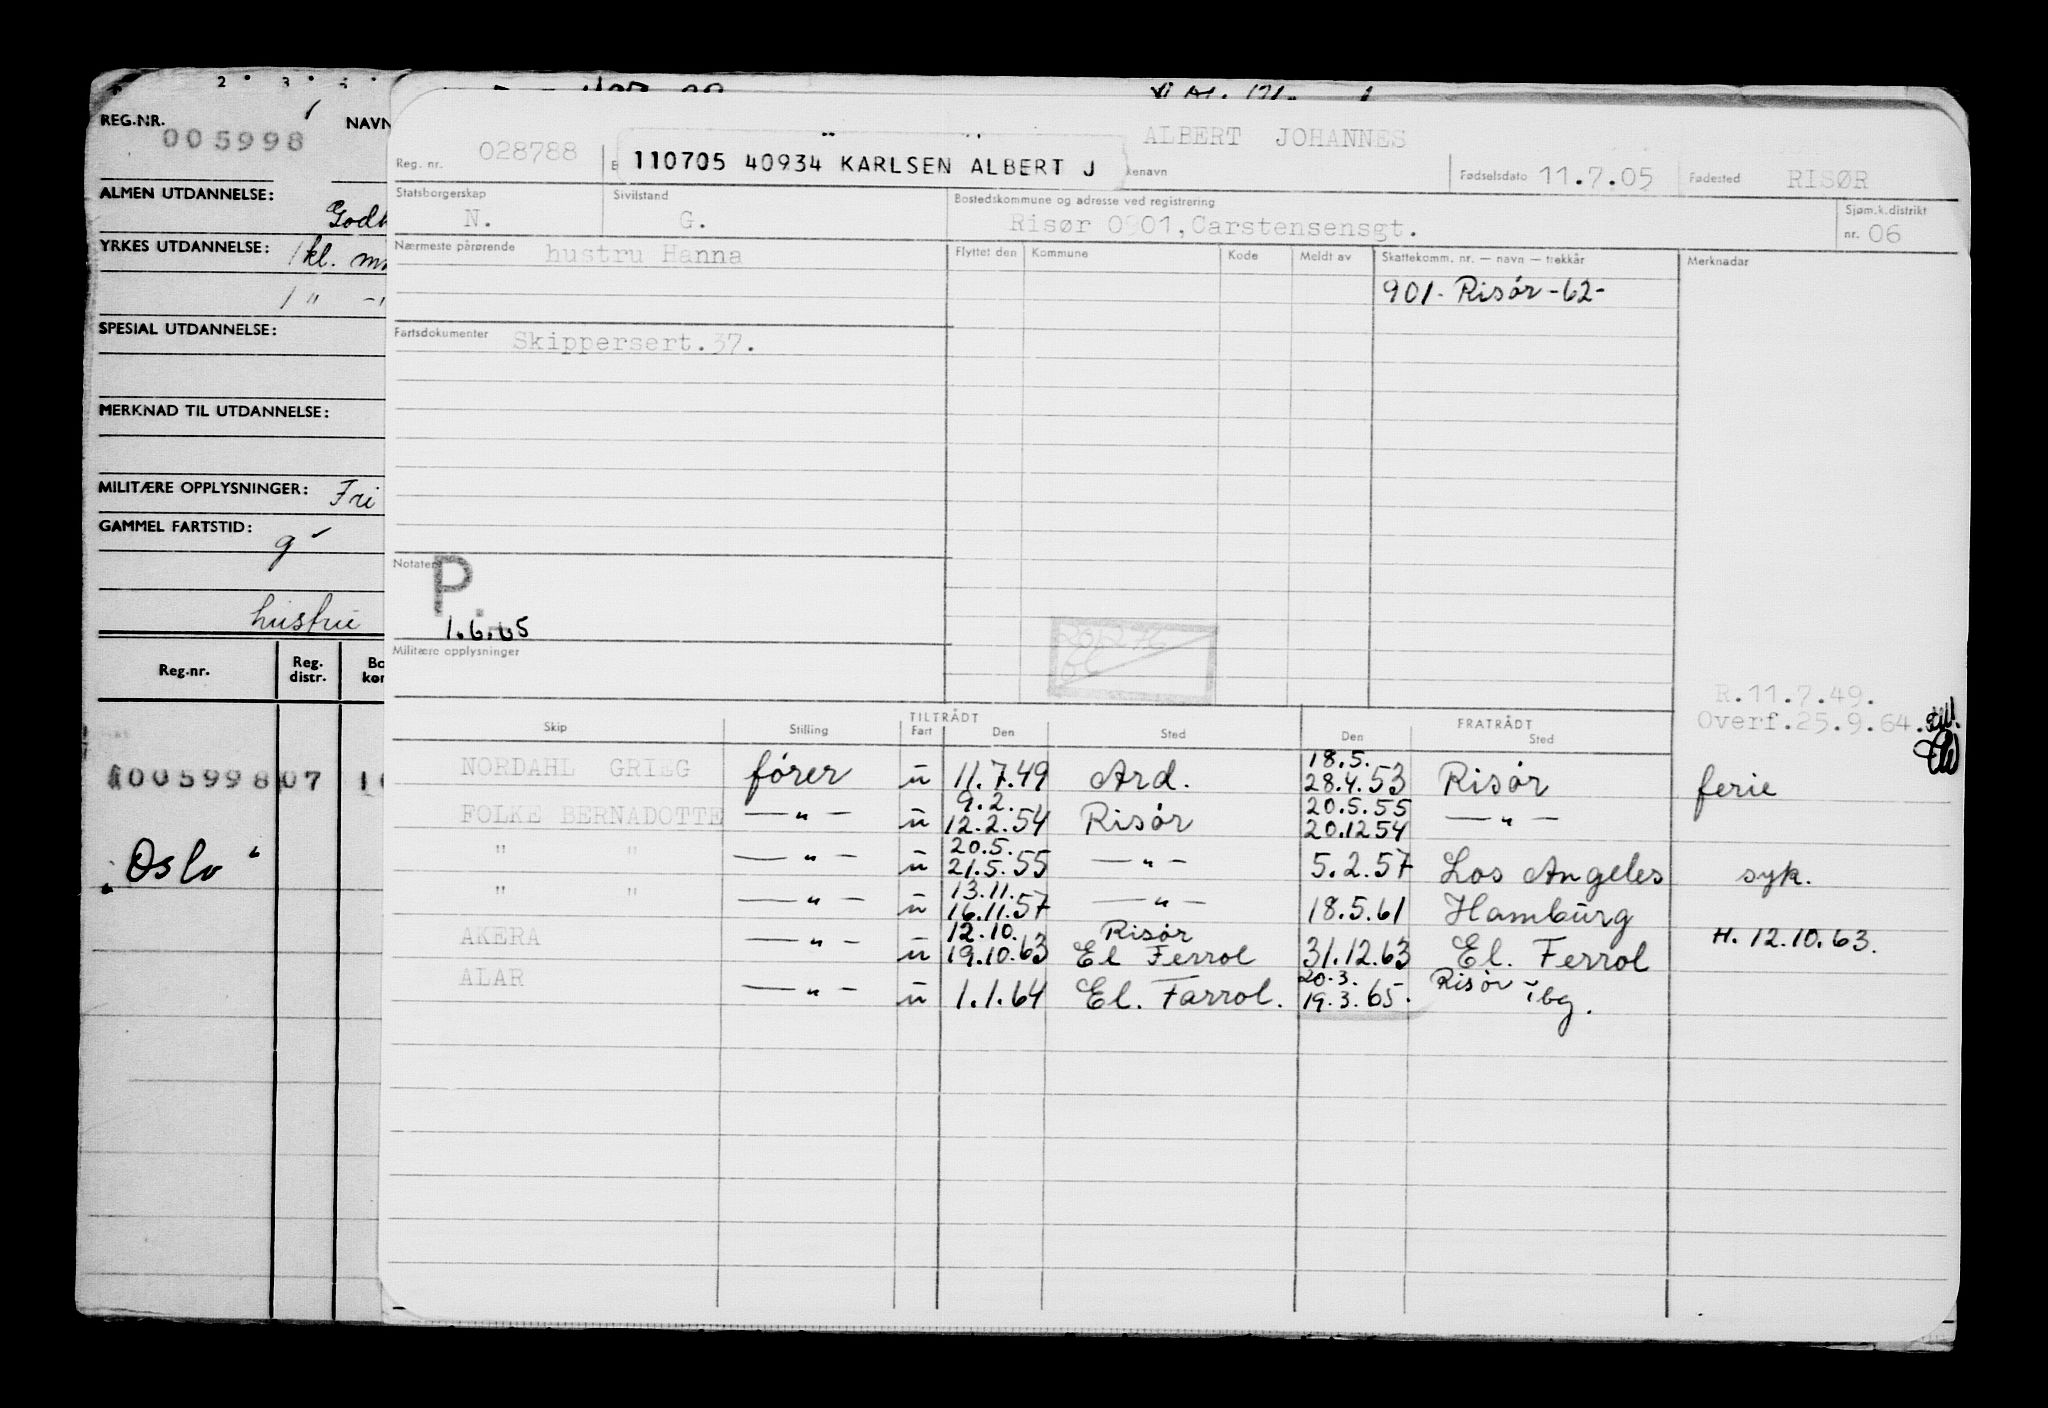 2 3 4
REG.NR. 005998 NAVN
ALMEN UTDANNELSE:
YRKES UTDANNELSE: 1 kl.
1 "
SPESIAL UTDANNELSE:
MERKNAD TIL UTDANNELSE:
MILITÆRE OPPLYSNINGER: Fri
GAMMEL FARTSTID:
g
hustru
Reg.nr. Reg. distr.
100599807
"Oslo"
ALBERT JOHANNES
Reg. nr. 028788 110705 40934 KARLSEN ALBERT J kenavn Fødselsdato 11.7.05 Fødested RISØR
Statsborgerskap N. Sivilstand G. Bostedskommune og adresse ved registrering Risør 0901, Carstensensgt. Sjøm.k.distrikt nr. 06
Nærmeste pårørende hustru Hanna Flyttet den Kommune Kode Meldt av Skattekomm. nr. — navn — trekkår Merknader
901- Risør -62-
Fartsdokumenter Skippersert.37.
Notater P.
1.6.65
Militære opplysninger
R.11.7.49.
Overf.25.9.64.
TILTRÅDT FRATRÅDT
Skip Stilling Fart Den Sted Den Sted
NORDAHL GRIEG fører u 11.7.49 Ard. 18.5. 28.4.53 Risør ferie
FOLKE BERNADOTTE — " — u 9.2. 12.2.54 Risør 20.5.55 20.12 54 — " —
" " — " — u 20.5. 21.5.55 — " — 5.2.57 Los Angeles syk.
" " — " — u 13.11. 16.11.57 — " — 18.5.61 Hamburg
AKERA — " — u 12.10. 19.10.63 Risør El Ferrol 31.12.63 El. Ferrol H. 12.10.63.
ALAR — " — u 1.1.64 El. Farrol. 20.3. 19.3.65. Risør ibg.